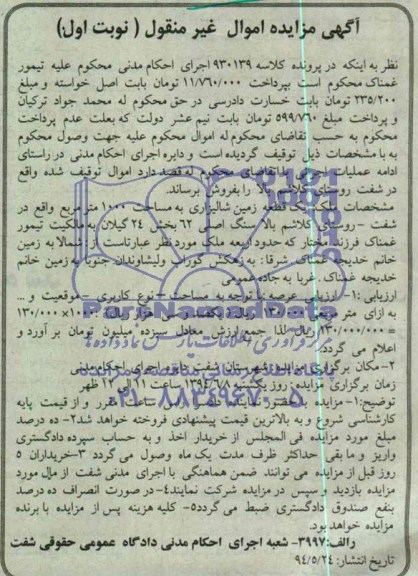 آگهی مزایده اموال غیر منقول ( نوبت اول)
نظر به اینکه در پرونده کلاسه ۹۳۰۱۳۹ اجرای احکام مدنی محکوم علیه تیمور
غمناک محکوم است بپرداخت ۱۱/۷۶۰/۰۰۰ تومان بابت اصل خواسته و مبلغ
۲۳۵/۲۰۰ تومان بابت خسارت دادرسی در حق محکوم له محمد جواد ترکیان
و پرداخت مبلغ ۵۹۹/۷۶۰ تومان بابت نیم عشر دولت که بعلت عدم پرداخت
محکوم به حسب تقاضای محکوم له اموال محکوم علیه جهت وصول محکوم
به با مشخصات ذیل توقیف گردیده است و دایره اجرای احکام مدنی در راستای
ادامه عملیات اجرایی با تقاضای محکوم له قصد دارد اموال توقیف شده واقع
در شفت روستای کلاشم بالا را بفروش برساند.
مشخصات ملک: یک قطعه زمین شالیزاری به مساحت ۱۰۰۰ متر مربع واقع در
شفت - روستای کلاشم بالا سنگ اصلی ۶۲ بخش ۲۴ گیلان به مالکیت تیمور
غمناک فرزند مختار که حدود اربعه ملک مورد نظر عبارتاست از : شمالا به زمین
خانم خدیجه غمناک شرقا: به زهکش گوراب ولیشاوندان جنوبا به زمین خانم
خدیجه غمناک .غربا به جاده عمومی
ارزیابی :۱- ارزیابی عرصه :با توجه به مساحت – نوع کاربری – موقعیت و ...
به ازای متر مربع ۱۳۰/۰۰۰ ریال ۱۰۰۰× ۱۳۰/۰۰۰
= ۱۳۰/۰۰۰/۰۰۰ ریال لذا جمع ارزش معادل سیزده میلیون تومان بر آورد و
اعلام می گردد.
۲-مکان برگزاری مزایده: شهرستان شفت دفتر اجرای احکام مدنی
زمان برگزاری مزایده: روز یکشنبه ۱۳۹۴/۶/۸ ساعت ۱۱ الی ۱۲ ظهر
توضیح:۱- مزایده با حضور نماینده دادستان راس ساعت مقرر و از قیمت پایه
کارشناسی شروع و به بالاترین قیمت پیشنهادی فروخته خواهد شد۲- ده درصد
مبلغ مورد مزایده فی المجلس از خریدار اخذ و به حساب سپرده دادگستری
واریز و ما بقی حداکثر ظرف مدت یک ماه وصول می گردد ۳-خریداران ۵
روز قبل از مزایده می توانند ضمن هماهنگی با اجرای مدنی شفت از مال مورد
مزایده بازدید و سپس در مزایده شرکت نمایند۴- در صورت انصراف ده درصد
بنفع صندوق دادگستری ضبط می گردد۵- کلیه هزینه پس از مزایده با برنده
مزایده خواهد بود.
رالف:۳۹۹۷- شعبه اجرای احکام مدنی دادگاه عمومی حقوقی شفت
تاریخ انتشار: ۹۴/۵/۲۴
ParsNamadData
پایگاه اطلاع رسانی مناقصه و مزایده
۰۲۱-۸۸۳۴۹۶۷۰-۵